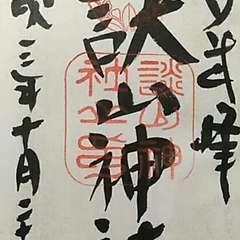 多武峰
談山神社
成三年十月二
談山神
社之印